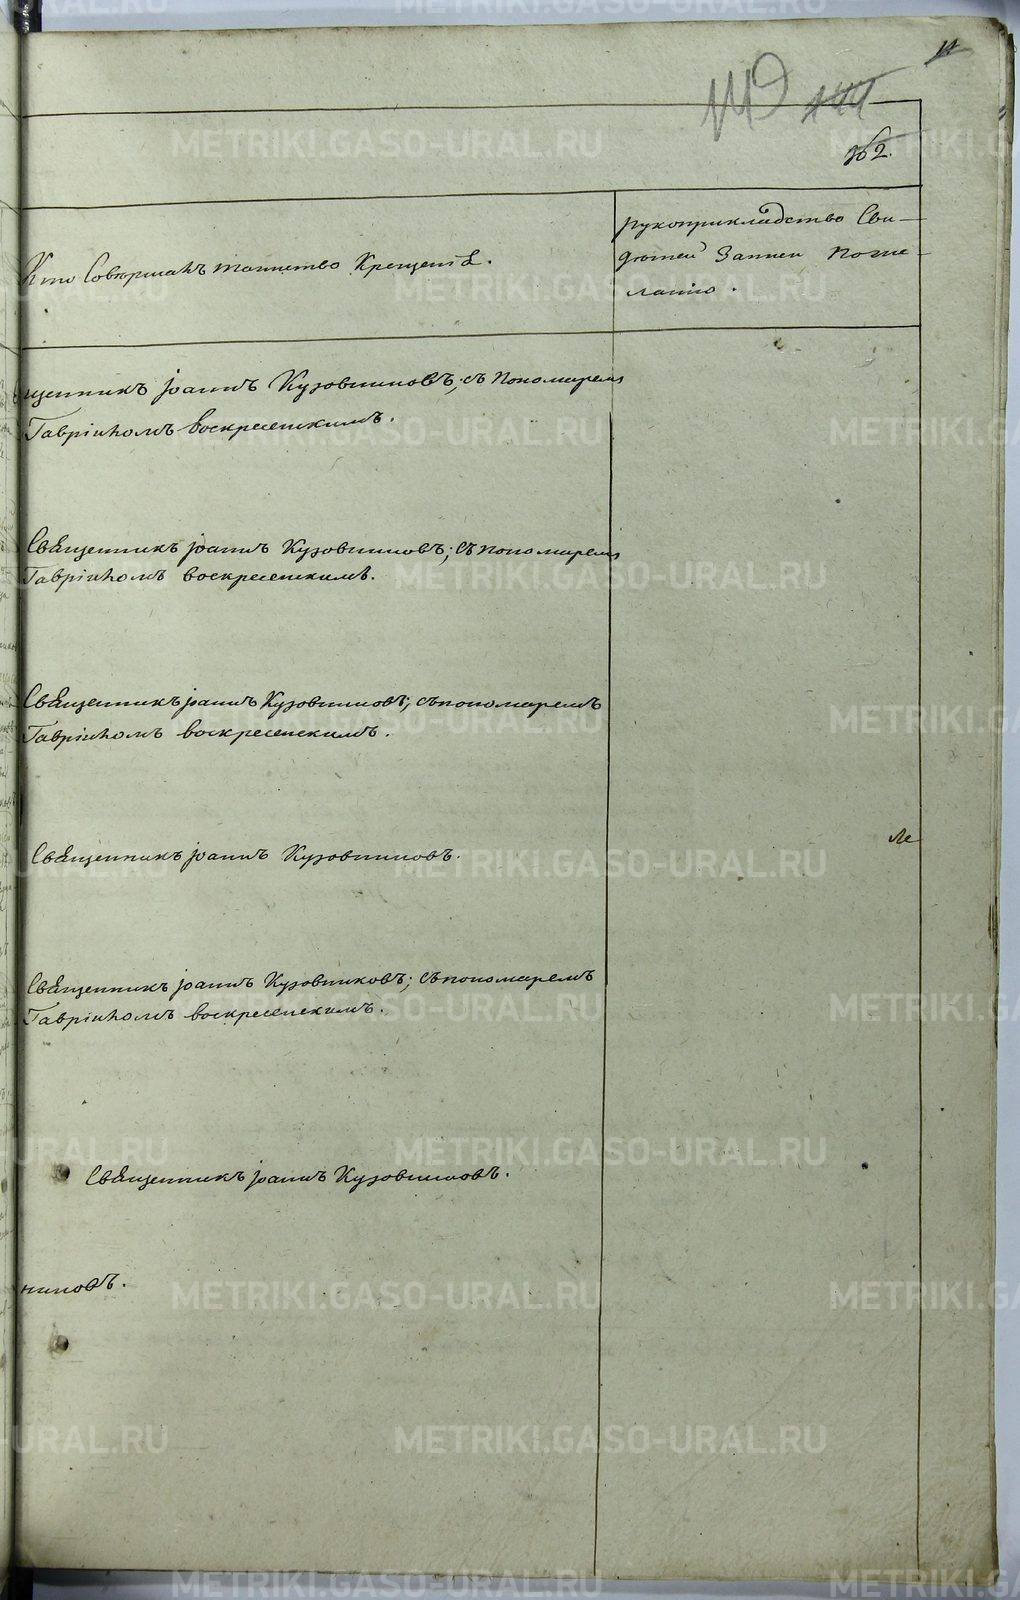 149 144
362.
Кто Совершалъ таинство Крещенія.
рукоприкладство Сви-
дѣтелей Записи Поже-
ланію.
щенникъ Іоаннъ Кузовниковъ; съ Пономаремъ
Гавріиломъ Воскресенскимъ.
Священникъ Іоаннъ Кузовниковъ; съ пономаремъ
Гавріиломъ воскресенскимъ.
Священникъ Іоаннъ Кузовниковъ; съ пономаремъ
Гавріиломъ Воскресенскимъ.
Священникъ Іоаннъ Кузовниковъ.
Священникъ Іоаннъ Кузовниковъ; съ пономаремъ
Гавріиломъ Воскресенскимъ.
Священникъ Іоаннъ Кузовниковъ.
никовъ.
METRIKI.GASO-URAL.RU